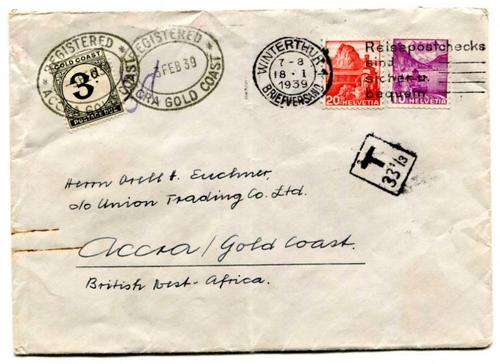 REGISTERED
ACCRA GOLD COAST
GOLD COAST
3d.
POSTAGE DUE
REGISTERED
FEB 39
ACCRA GOLD COAST
WINTERTHUR
7-8
18·I
1939
BRIEFVERSAND
20 HELVETIA
HELVETIA
Reisepostchecks
sind
sicher u.
bequem
T
33⅓
Herrn
c/o Union Trading Co. Ltd.
Accra/Gold Coast.
British West-Africa.